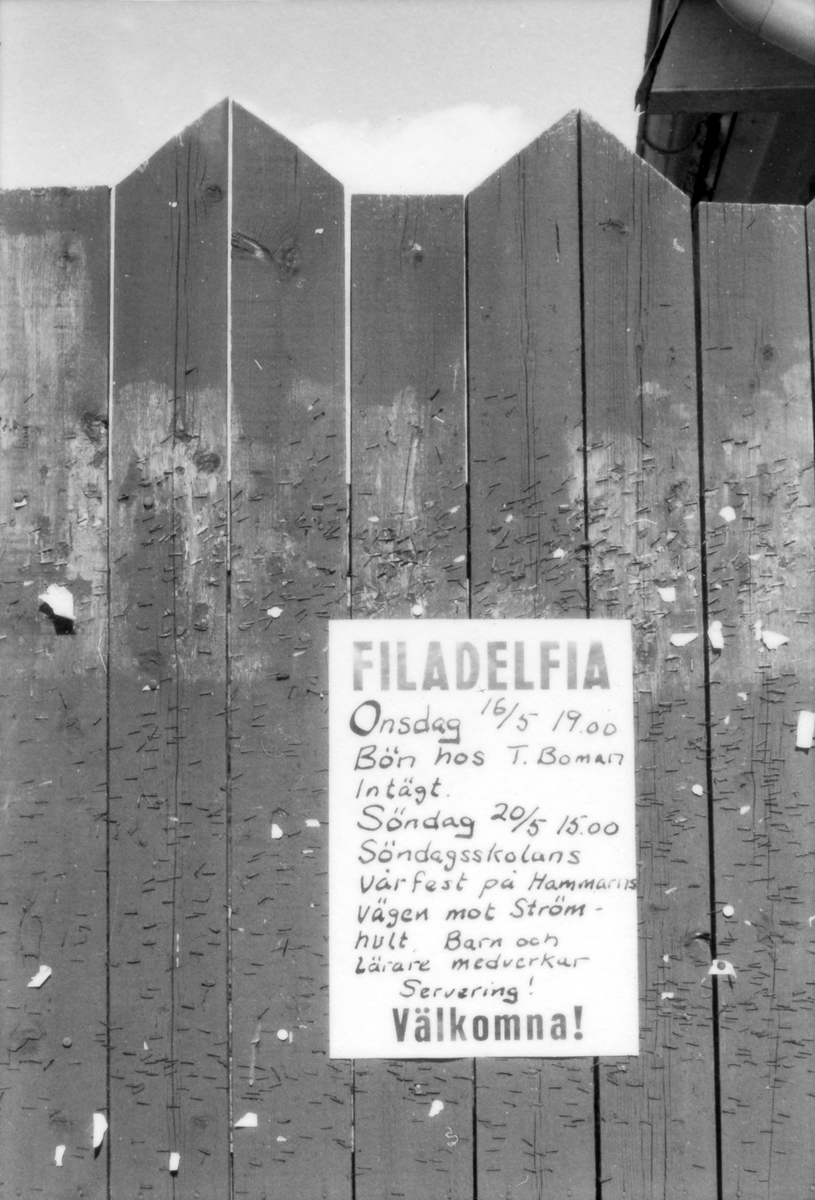 FILADELFIA
Onsdag 16/5 19.00
Bön hos T. Boman
Intägt.
Söndag 20/5 15.00
Söndagsskolans
Vårfest på Hammarns
vägen mot Ström-
hult. Barn och
lärare medverkar
Servering!
Välkomna!